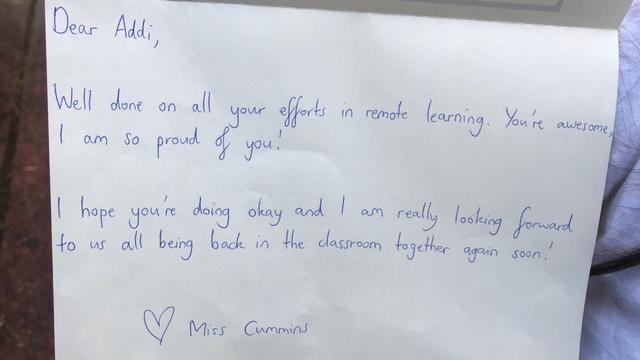 Dear Addi,
Well done on all your efforts in remote learning. You're awesome,
I am so proud of you!
I hope you're doing okay and I am really looking forward
to us all being back in the classroom together again soon!
♡ Miss Cummins